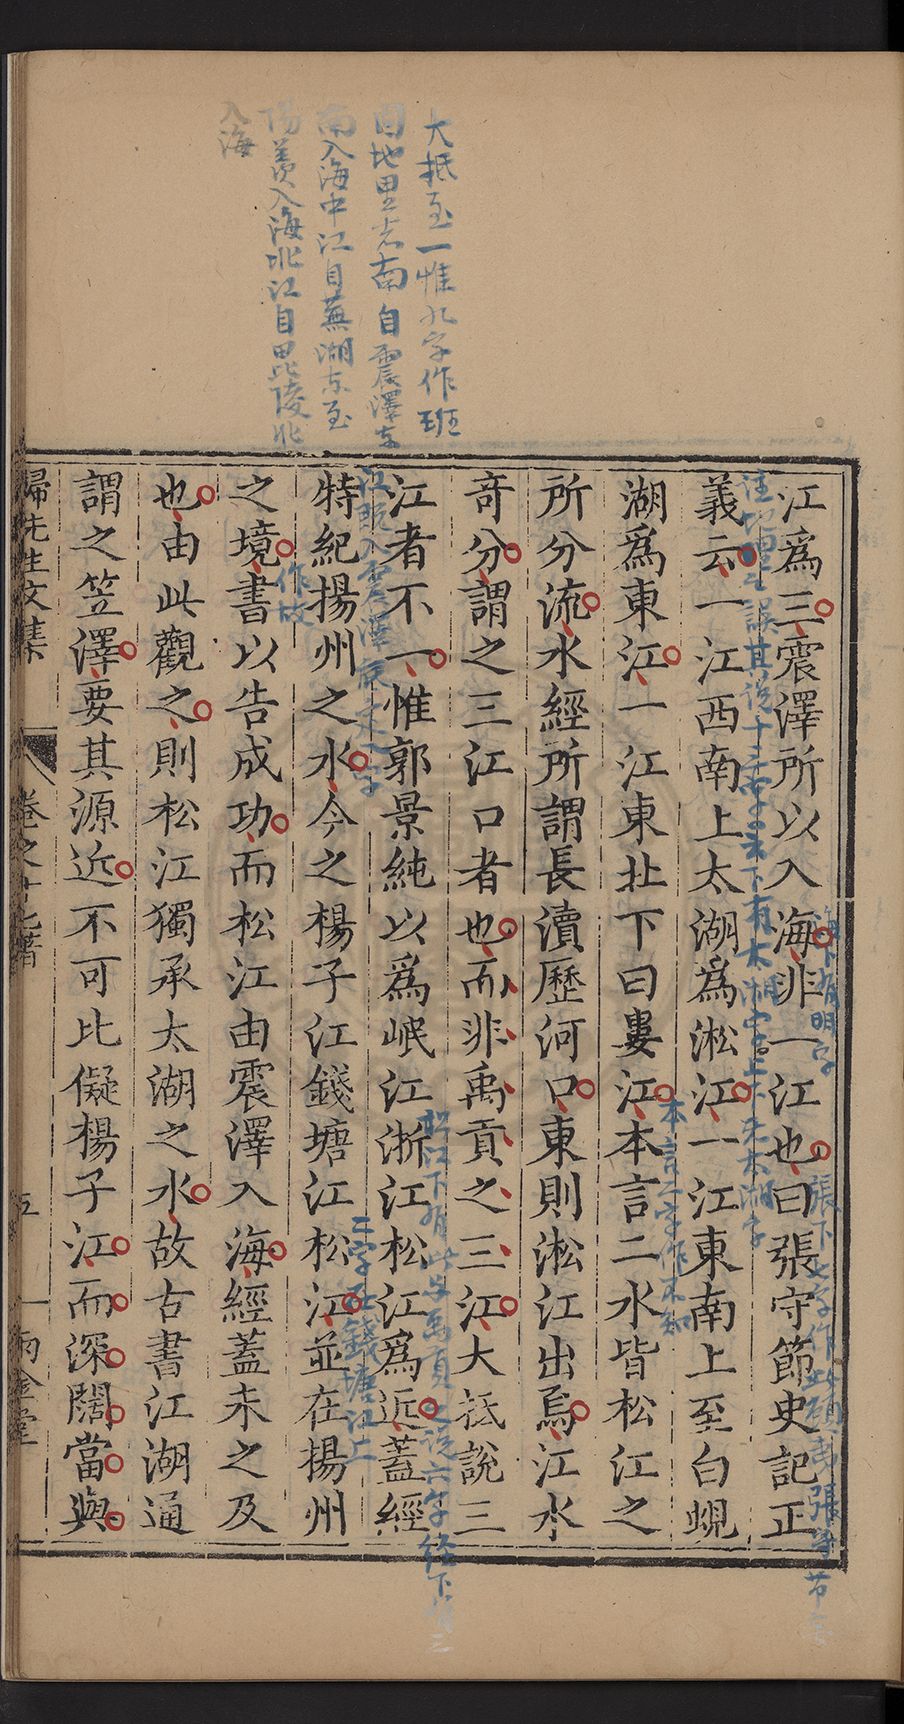 大抵至一惟九字作班
固地里志南自震澤東
南入海中江自蕪湖東至
陽羨入海北江自毘陵北
入海
江爲三震澤所以入海非一江也曰張守節史記正
義云一江西南上太湖爲淞江一江東南上至白蜆
湖爲東江一江東北下曰婁江本言二水皆松江之
所分流水經所謂長瀆歷河口東則淞江出焉江水
奇分謂之三江口者也而非禹貢之三江大抵說三
江者不一惟郭景純以爲岷江浙江松江爲近蓋經
特紀揚州之水今之楊子江錢塘江松江並在揚州
之境書以告成功而松江由震澤入海經蓋未之及
也由此觀之則松江獨承太湖之水故古書江湖通
謂之笠澤要其源近不可比儗楊子江而深闊當與
歸先生文集
卷之
五
海下有明字
張下七字作
張守節
其說十三字
本言二字作不知
松江下有此與禹貢之說六字經下有三
江既入震澤底定
二字在錢塘江上
作故